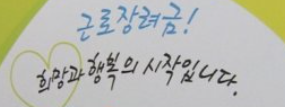 근로장려금!
희망과 행복의 시작입니다.